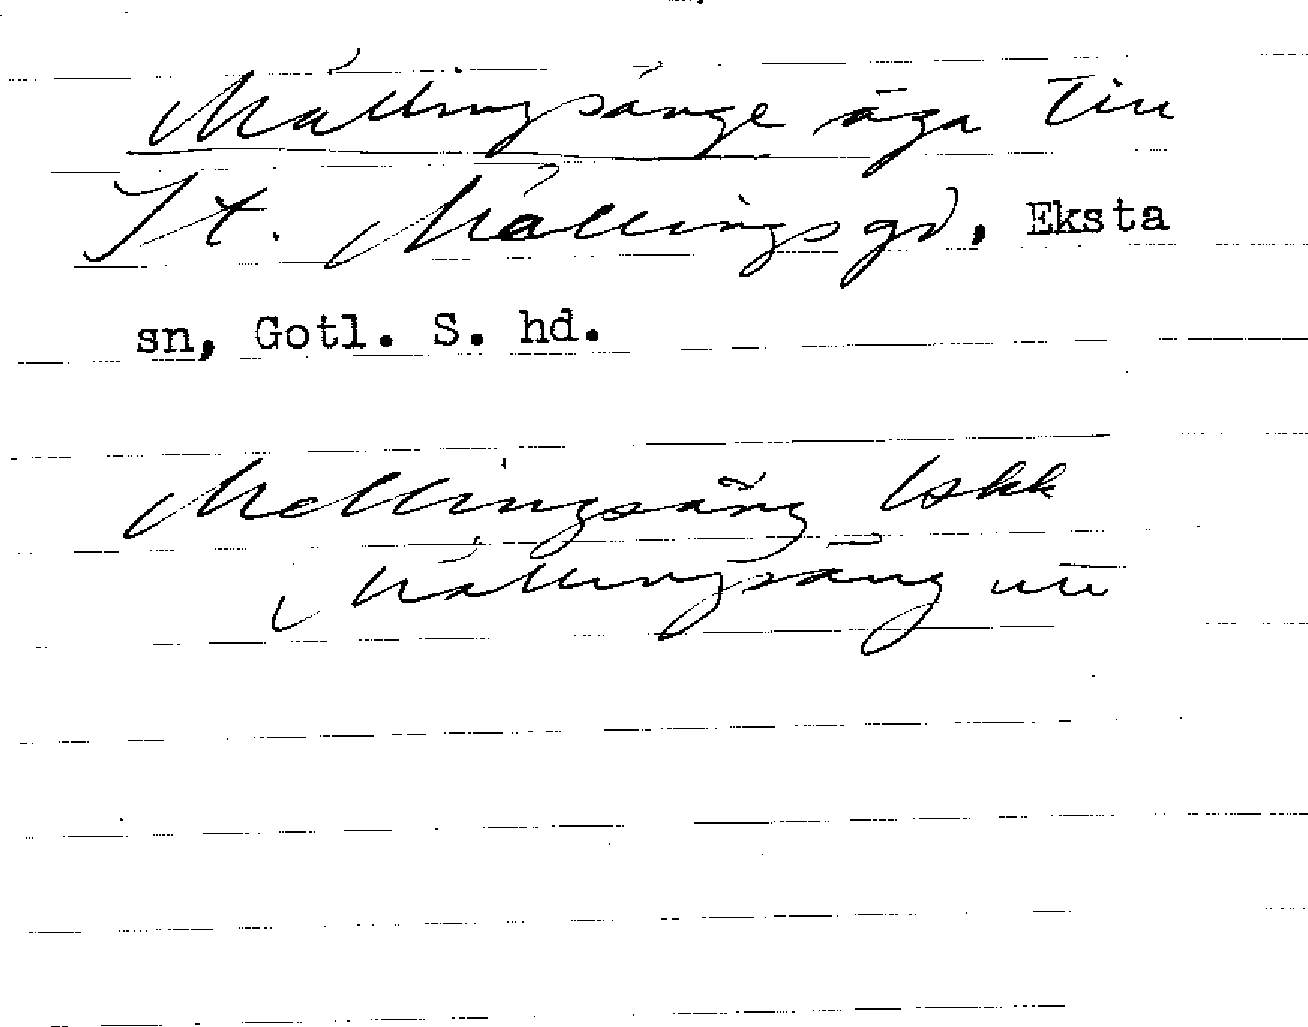 Mällingsänge äga till
St. Mällingsgd, Eksta
sn, Gotl. S. hd.
Mellingsäng lskk
Mällingsäng